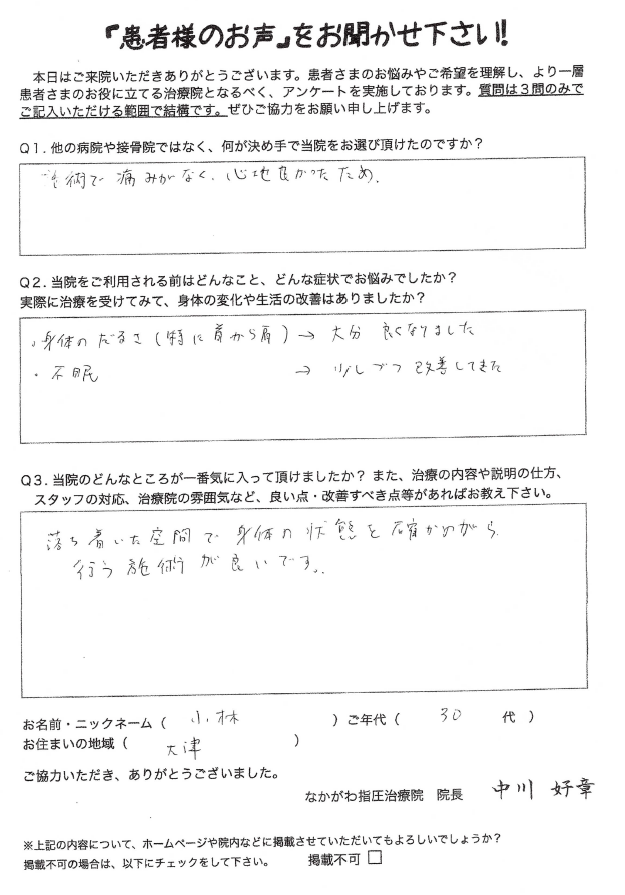 『患者様のお声』をお聞かせ下さい!
本日はご来院いただきありがとうございます。患者さまのお悩みやご希望を理解し、より一層
患者さまのお役に立てる治療院となるべく、アンケートを実施しております。質問は3問のみで
ご記入いただける範囲で結構です。ぜひご協力をお願い申し上げます。
Q1. 他の病院や接骨院ではなく、何が決め手で当院をお選び頂けたのですか?
施術で痛みがなく、心地良かったため.
Q2. 当院をご利用される前はどんなこと、どんな症状でお悩みでしたか?
実際に治療を受けてみて、身体の変化や生活の改善はありましたか?
・身体のだるさ(特に首から肩)→ 大分 良くなりました
・不眠 → 少しづつ 改善してきた
Q3. 当院のどんなところが一番気に入って頂けましたか? また、治療の内容や説明の仕方、
スタッフの対応、治療院の雰囲気など、良い点・改善すべき点等があればお教え下さい。
落ち着いた空間で身体の状態を確かめながら
行う施術が良いです。
お名前・ニックネーム( 小林 )ご年代( 30 代 )
お住まいの地域( 大津 )
ご協力いただき、ありがとうございました。
なかがわ指圧治療院 院長 中川 好章
※上記の内容について、ホームページや院内などに掲載させていただいてもよろしいでしょうか?
掲載不可の場合は、以下にチェックをして下さい。 掲載不可 □